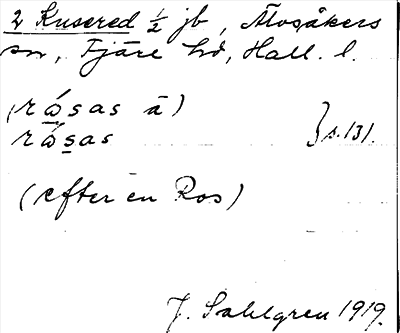 2 Kusered ½ jb, Älvsåkers
sn, Fjäre hd, Hall. l.
(råsas å)
råsas } s. 131.
(efter en Ros)
J. Sahlgren 1919.